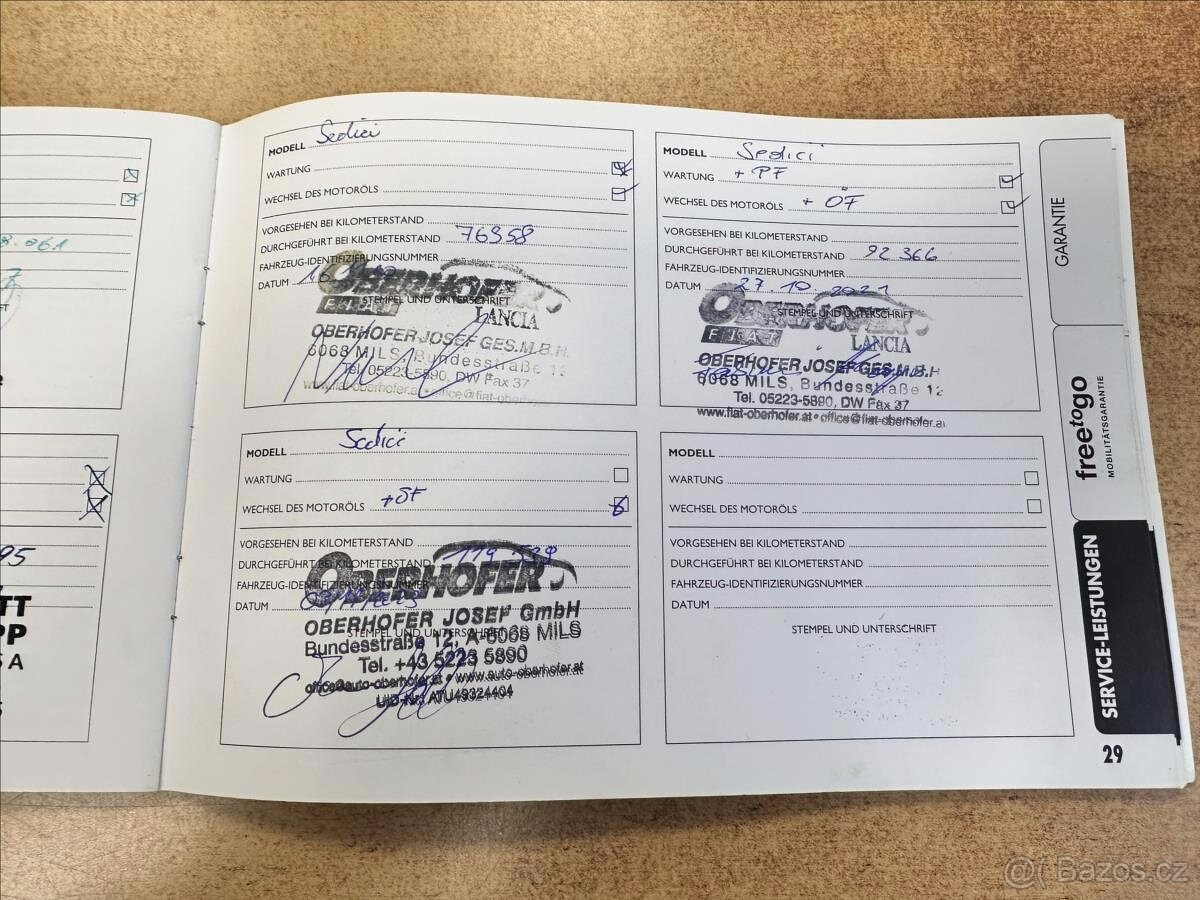 MODELL Sedici
WARTUNG
WECHSEL DES MOTORÖLS
VORGESEHEN BEI KILOMETERSTAND
DURCHGEFÜHRT BEI KILOMETERSTAND 76958
FAHRZEUG-IDENTIFIZIERUNGSNUMMER
DATUM 16.
STEMPEL UND UNTERSCHRIFT
OBERHOFER
FIAT LANCIA
OBERHOFER JOSEF GES.M.B.H.
6068 MILS, Bundesstraße 12
Tel. 05223-5890, DW Fax 37
www.fiat-oberhofer.at • office@fiat-oberhofer
MODELL Sedici
WARTUNG + PF
WECHSEL DES MOTORÖLS + ÖF
VORGESEHEN BEI KILOMETERSTAND
DURCHGEFÜHRT BEI KILOMETERSTAND 92 366
FAHRZEUG-IDENTIFIZIERUNGSNUMMER
DATUM 27. 10. 2021
STEMPEL UND UNTERSCHRIFT
OBERHOFER
FIAT LANCIA
OBERHOFER JOSEF GES.M.B.H
6068 MILS, Bundesstraße 12
Tel. 05223-5890, DW Fax 37
www.fiat-oberhofer.at • office@fiat-oberhofer.at
MODELL Sedici
WARTUNG
WECHSEL DES MOTORÖLS + ÖF
VORGESEHEN BEI KILOMETERSTAND
DURCHGEFÜHRT BEI KILOMETERSTAND
FAHRZEUG-IDENTIFIZIERUNGSNUMMER
DATUM
STEMPEL UND UNTERSCHRIFT
OBERHOFER
OBERHOFER JOSEF GmbH
Bundesstraße 12, A-6068 MILS
Tel. +43 5223 5890
office@auto-oberhofer.at • www.auto-oberhofer.at
UID-Nr.: ATU49324404
MODELL
WARTUNG
WECHSEL DES MOTORÖLS
VORGESEHEN BEI KILOMETERSTAND
DURCHGEFÜHRT BEI KILOMETERSTAND
FAHRZEUG-IDENTIFIZIERUNGSNUMMER
DATUM
STEMPEL UND UNTERSCHRIFT
GARANTIE
freetogo
MOBILITÄTSGARANTIE
SERVICE-LEISTUNGEN
29
Bazos.cz